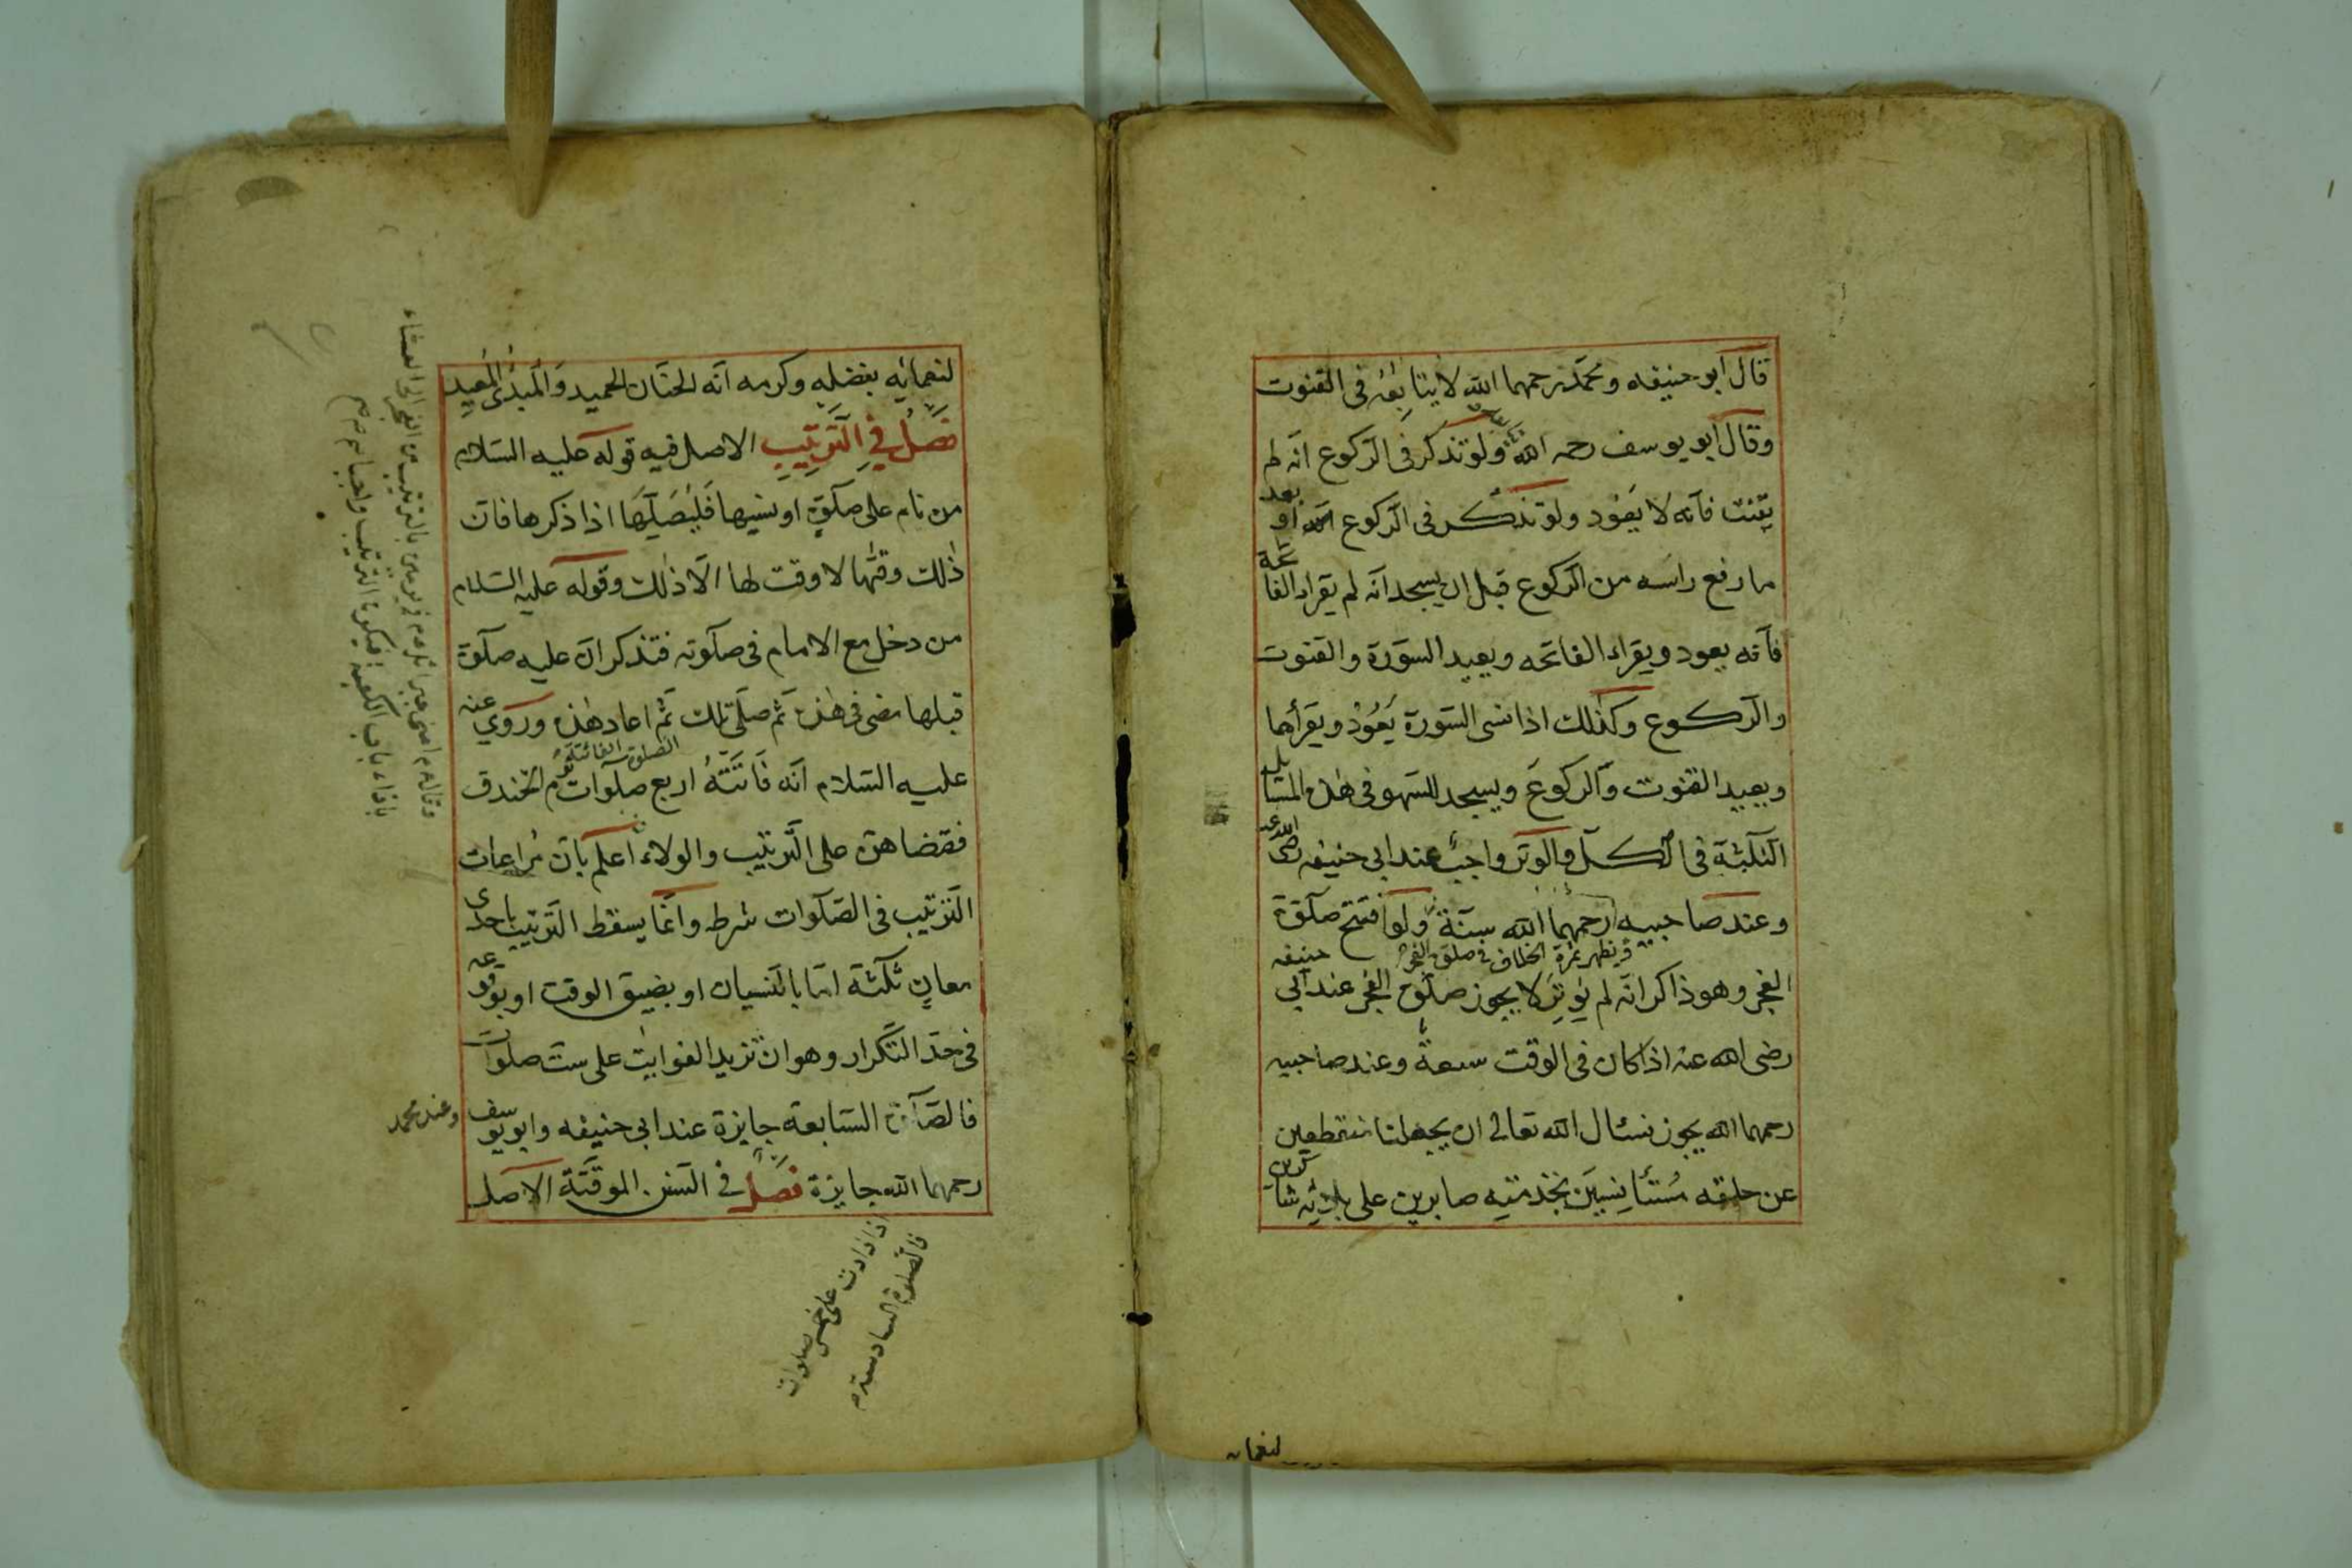 قال ابو حنيفه ومحمّد رحمهما الله لا يتابعه فى القنوت
وقال ابو يوسف رحمه الله ولو تذكر فى الركوع انه لم
يقنت فانه لا يعود ولو تذكر فى الركوع او بعد
ما رفع راسه من الركوع قبل ان يسجد انه لم يقراء الفاتحة
فانه يعود ويقراء الفاتحه ويعيد السورة والقنوت
والركوع وكذلك اذا نسى السورة يعود ويقرأها
ويعيد القنوت والركوع ويسجد للسهو فى هذه المسايل
الثلثة فى الكل والوتر واجب عند ابى حنيفه رضى الله عنه
وعند صاحبيه رحمهما الله سنّة ولو افتتح صلوة
ويظهر ثمرة الخلاف فى صلوة الفجر
الفجر وهو ذاكر انه لم يوتر لا يجوز صلوة الفجر عند ابى حنيفه
رضى الله عنه اذا كان فى الوقت سعة وعند صاحبيه
رحمهما الله يجوز نسئال الله تعالى ان يجعلنا منقطعين
عن خلقه مستأنسين بخدمته صابرين على بلائه شاكرين
لنعمائه
لنعمائه بفضله وكرمه انه الحنّان الحميد والمبدئ المعيد
فصل في الترتيب الاصل فيه قوله عليه السلام
من نام على صلوة او نسيها فليصليها اذا ذكرها فان
ذلك وقتها لا وقت لها الّا ذلك وقوله عليه السلام
من دخل مع الامام فى صلوته فتذكر ان عليه صلوة
قبلها مضى فى هذه ثم صلى تلك ثم اعاد هذه وروي عنه
الصلوة الفائتة
عليه السلام انه فاتته اربع صلوات يوم الخندق
فقضاهن على الترتيب والولاء اعلم بان مراعات
الترتيب فى الصلوات شرط وانما يسقط الترتيب باحدى
معان ثلثة امّا بالنسيان او بضيق الوقت او بوقوعه
فى حدّ التكرار وهو ان تزيد الفوايت على ست صلوات
فالصلوة السابعة جايزة عند ابى حنيفه وابو يوسف
وعند محمد
رحمهما الله جايزة فصل فى السنن الموقتة الاصل
اذا زادت على خمس صلوات
فالصلوة السادسة